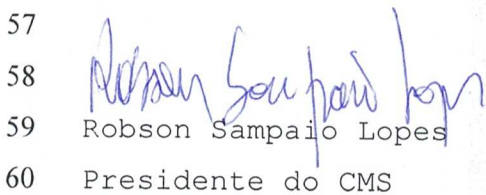 57
58 Robson Sampaio Lopes
59 Robson Sampaio Lopes
60 Presidente do CMS